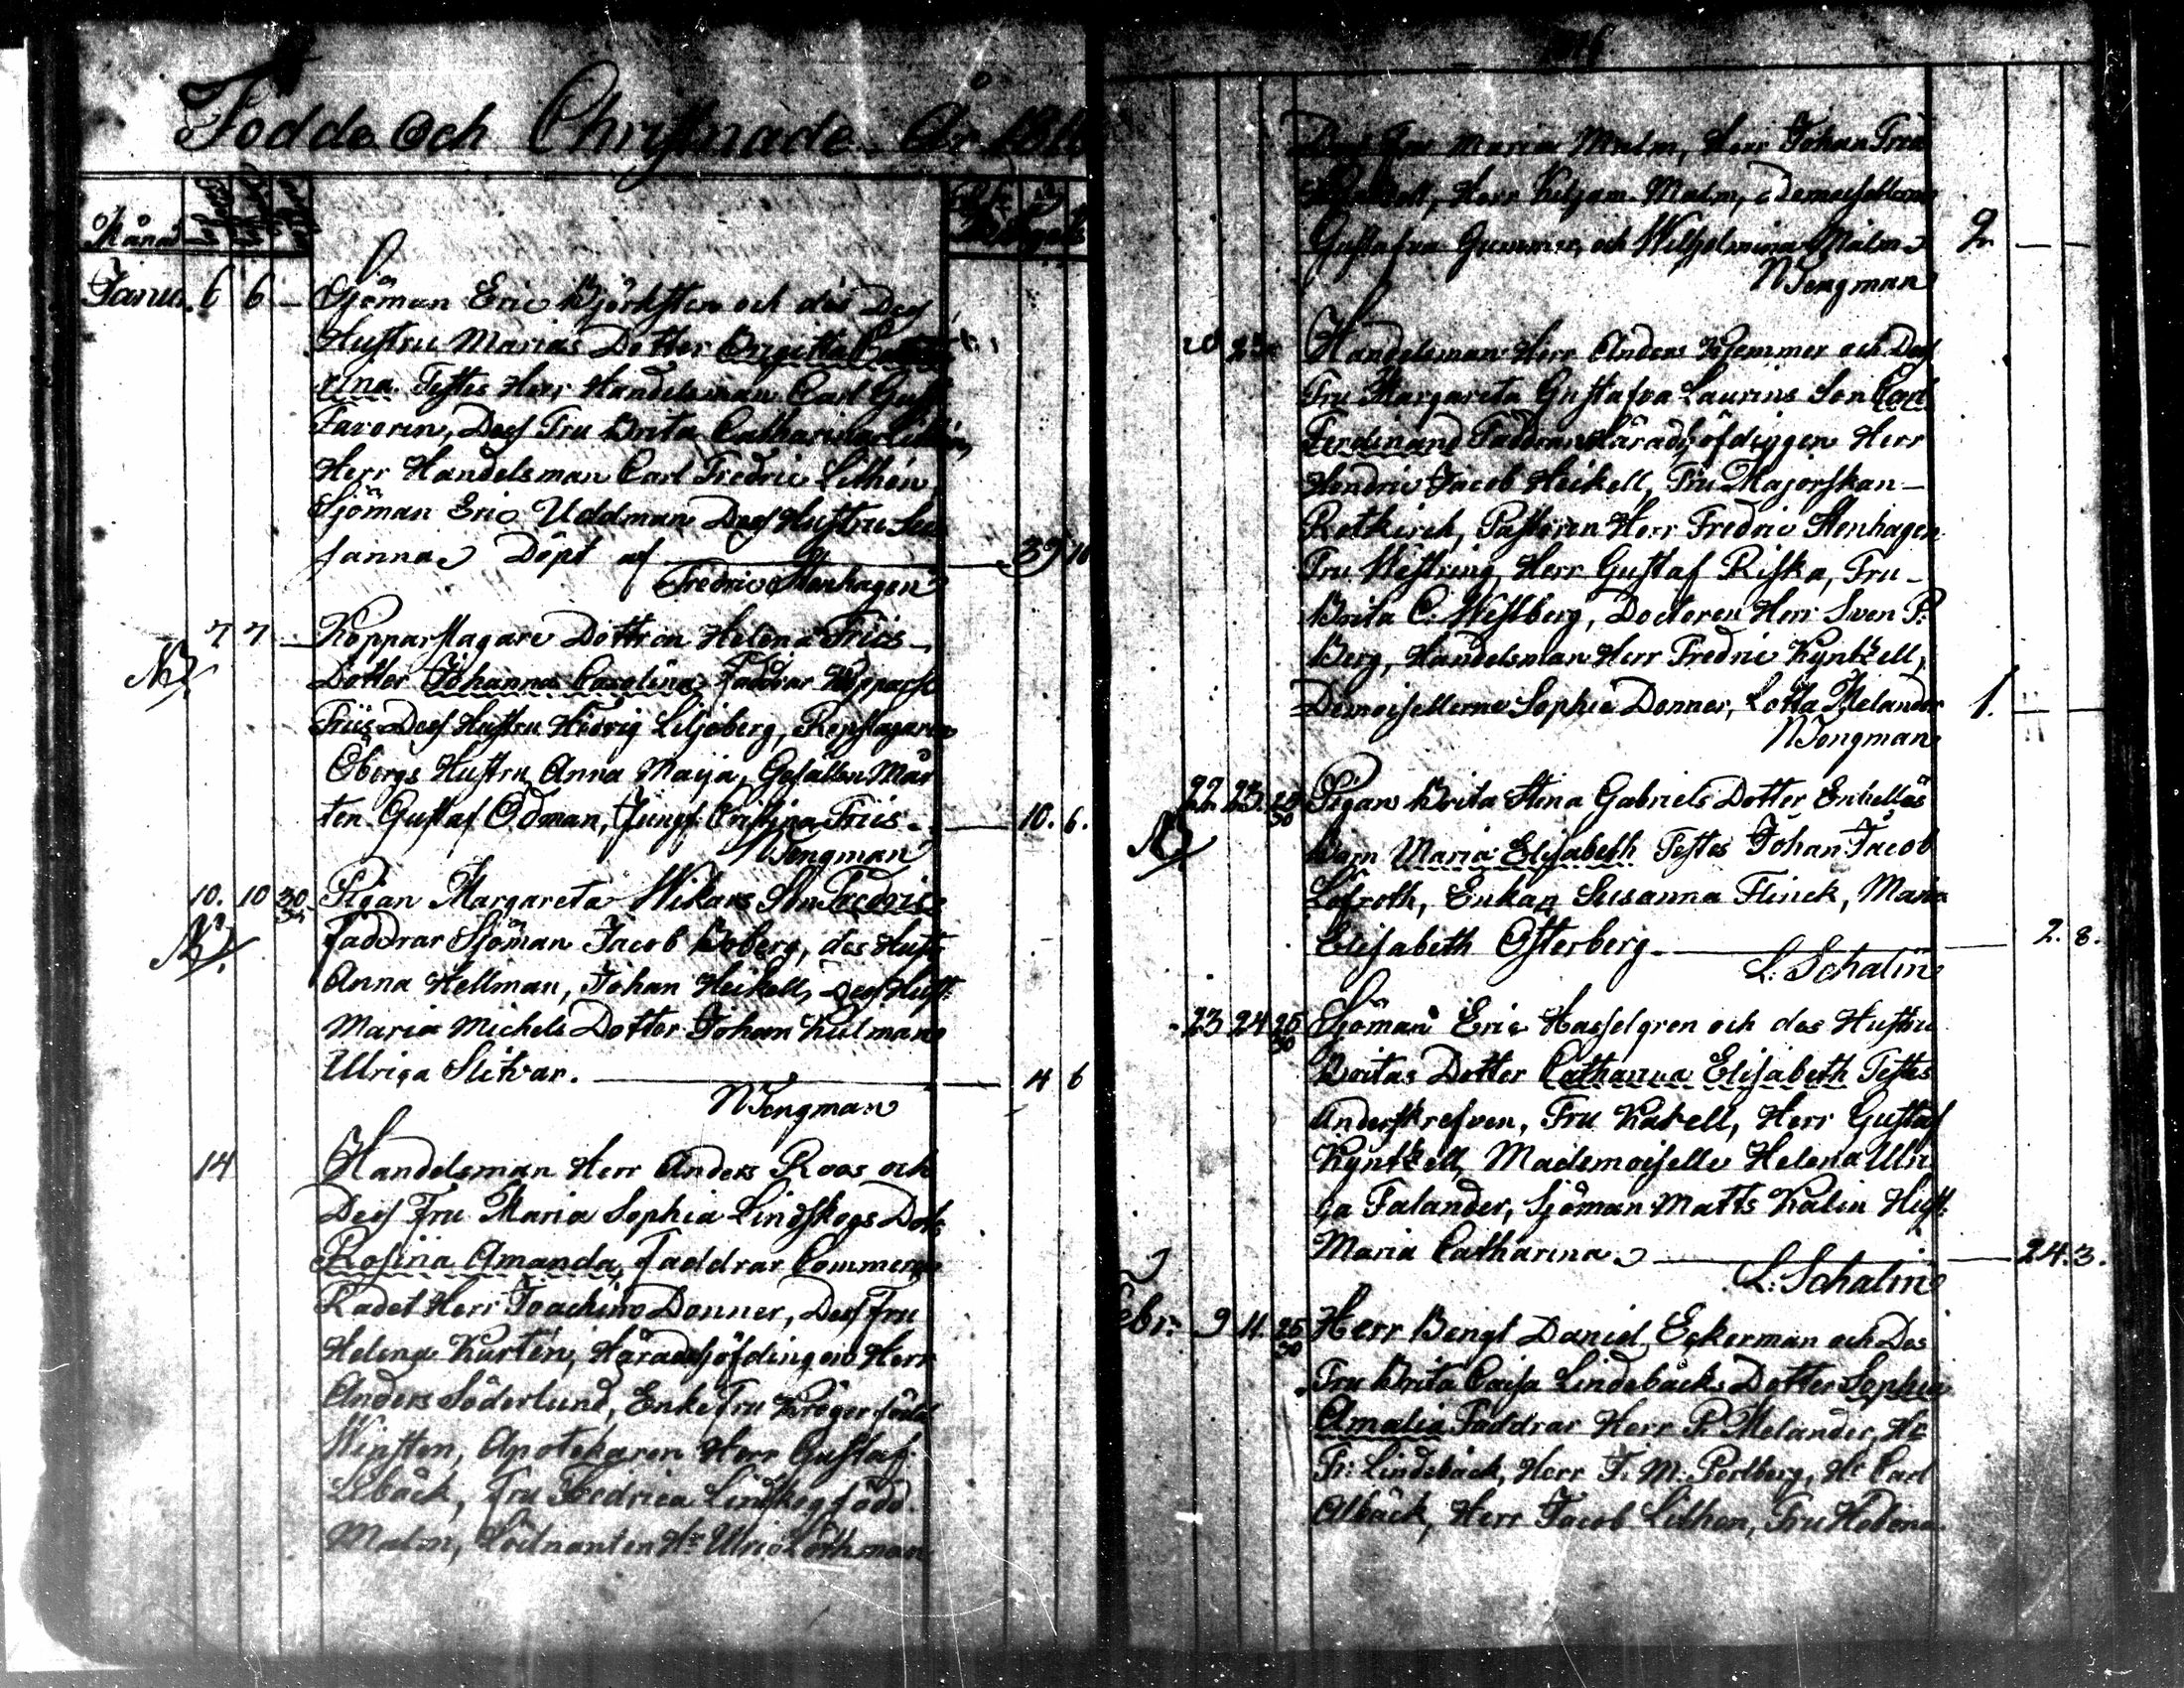 Födde och Christnade År
Månad
Janua. 6 6 — Sjöman Eric Björksten och dès Dess
Hustru Marias Dotter Brigitta Catha
rina Testes Herr Handelsman Carl Gust
Favorin, Dess Fru Brita Catharina Lithén,
Herr Handelsman Carl Fredric Lithén,
Sjöman Eric Uddman Dess Hustru Su
sanna Döpt af — 39 16
Fredric Stenhagen
7 7 — Kopparslagare Dottren Helena Friis
NB
Dotter Johanna Carolina, Faddrar Kopparsl
Friis Dess Hustru Hedvig Liljeberg, Repslagaren
Öbergs Hustru Anna Maija, Gesällen Mår
ten Gustaf Ödman, Jungf. Cristina Friis — 10. 6.
NTengman
10. 10 30 Pigan Margareta Wikars Son Fredric
NB
faddrar Sjöman Jacob Boberg, des Hust
Anna Hellman, Johan Heikell, Dess Hust:
Maria Michels Dotter Johan Kulman
Ulriga Slitvar. — 4 6
NTengman
14 Handelsman Herr Anders Roos och
Dess Fru Maria Sophia Lindskogs Dott
Rosina Amanda, faddrar Commerce
Radet Herr Joachim Donner, Dess Fru
Helena Kurtén, Häradshöfdingen Herr
Anders Söderlund, Enke Fru Kröger född
Winsten, Apotekaren Herr Gustaf
Elbäck, Fru Fredrica Lindskog född
Malm, Löitnanten Hr Ulric Löthman
Fru Maria Malm, Herr Johan
Herr Viljam Malm, Demoisellerna
Gustafva Gummer, och Wilhelmina Malm 2. — —
NTengman
Handelsman Herr Anders Kjemmer och Dess
Fru Margareta Gustafva Laurins Son Carl
Ferdinand Faddrar Häradshöfdingen Herr
Hendric Jacob Heikell, Fru Majorskan —
Rotkirch, Pastoren Herr Fredric Stenhagen
Fru Westring, Herr Gustaf Riska, Fru —
Brita C. Westberg, Doctoren Herr Sven P.
Berg, Handelsman Herr Fredric Kyntzell,
Demoisellerne Sophie Donner, Lotta Melander 1. — —
NTengman
22. 23. 25 Pigan Brita Stena Gabriels Dotter Enkellas
30
NB
Barn Maria Elisabeth Testes Johan Jacob
Löfroth, Enkan Susanna Flinck, Maria
Elisabeth Österberg — 2. 8.
L: Schalin
23 24 25 Sjöman Eric Hasselgren och des Hustru
30
Britas Dotter Catharina Elisabeth Testes
Anders Krefven, Fru Katell, Herr Gustaf
Kyntzell, Mademoiselle Helena Ulri
ca Falander, Sjöman Matts Kalin Hust.
Maria Catharina — 24. 3.
L: Schalin
Febr: 9 11. 25 Herr Bengt Daniel Eckerman och Des
30
Fru Brita Caisa Lindebäcks Dotter Sophia
Amalia Faddrar Herr P. Melander, Hr
Fr: Lindebäck, Herr F. M. Perlberg, Hr Carl
Albäck, Herr Jacob Lithen, Fru Helena